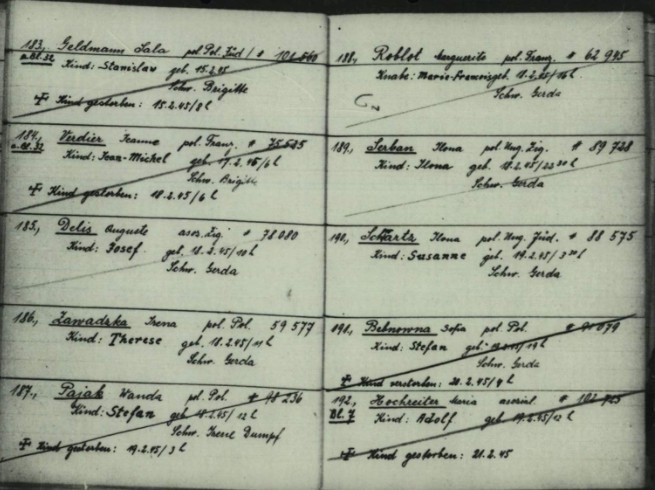 183., Geldmann Sala pol. Pol. Jüd /
a.Bl.32 Kind: Stanislaw geb. 15.2.45
Schw. Brigitte
Kind gestorben: 15.2.45/8 h
184., Verdier Jeanne pol. Franz. #
a.Bl.32 Kind: Jean-Michel geb.
Schw. Brigitte
Kind gestorben: 18.2.45/6 h
185., Delis Auguste asos. Zig # 78080
Kind: Josef geb. 18.2.45/10 h
Schw. Gerda
186., Zawadzka Irena pol. Pol. 59 577
Kind: Therese geb. 18.2.45/11 h
Schw. Gerda
187., Pajak Wanda pol. Pol. # 48 236
Kind: Stefan geb. 18.2.45/12 h
Schw. Dumpf
Kind gestorben: 19.2.45/3 h
188., Roblot Marguerite pol. Franz. # 62 995
Knabe: geb. 18.2.45
Schw. Gerda
189., Serban Ilona pol. Ung. Zig. # 89 728
Kind: Ilona geb. 18.2.45/22
Schw. Gerda
190., Schwartz Ilona pol. Ung. Jüd. # 88 575
Kind: Susanne geb. 19.2.45/3
Schw. Gerda
191., Sofia pol. Pol.
Kind: Stefan geb. 19.2.45/19 h
Schw. Gerda
Kind verstorben: 21.2.45/4 h
192., Hochreiter Maria #
Bl.7 Kind: Adolf geb. 19.2.45/12 h
Kind gestorben: 21.2.45